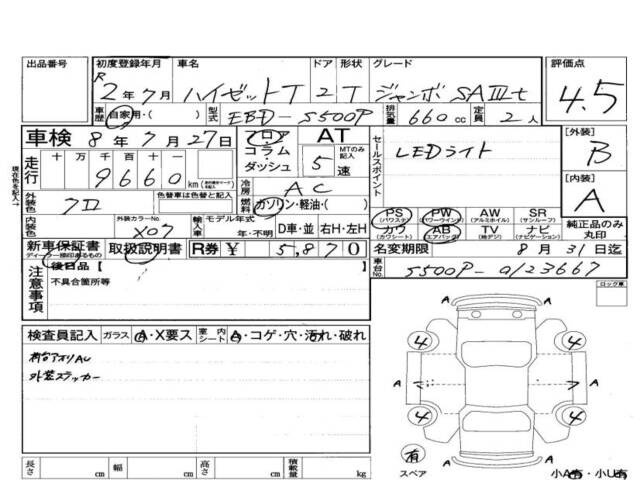 出品番号 初度登録年月 車名 ドア 形状 グレード 評価点
R2年7月 ハイゼットT 2 T ジャンボ SAⅢt 4.5
車歴 自家用・( ) 型式 EBD-S500P 排気量 660cc 定員 2人
車検 8年7月27日 フロア・コラム・ダッシュ AT MTのみ記入 5速
走行 十 万 千 百 十 一
9660km
セールスポイント LEDライト
[外装] B
[内装] A
冷房 AC
燃料 ガソリン・軽油・( )
外装色 クロ 色替車は色替と記入
内装色 外装カラーNo. X07
輸入車 モデル年式 年・不明 D車・並 右H・左H
PS (パワステ) PW (パワーウインド) AW (アルミホイル) SR (サンルーフ)
カワ (カワシート) AB (エアバック) TV (地デジ) ナビ (ナビゲーション)
純正品のみ丸印
新車保証書 ディーラー捺印あるもの 取扱説明書 R券 ¥ 5,870
名変期限 8月31日迄
車台No. S500P-0123667
注意事項 [後日品]
不具合箇所等
ロック車
検査員記入 ガラス A・X要ス 室内シート A・コゲ・穴・汚れ・破れ
荷台アオリAU
外装ステッカー
A
4 A 4
A A A A
4 4
有 A
スペア 小A有・小U有
長さ cm 幅 cm 高さ cm 積載量 kg
現在色を記入→